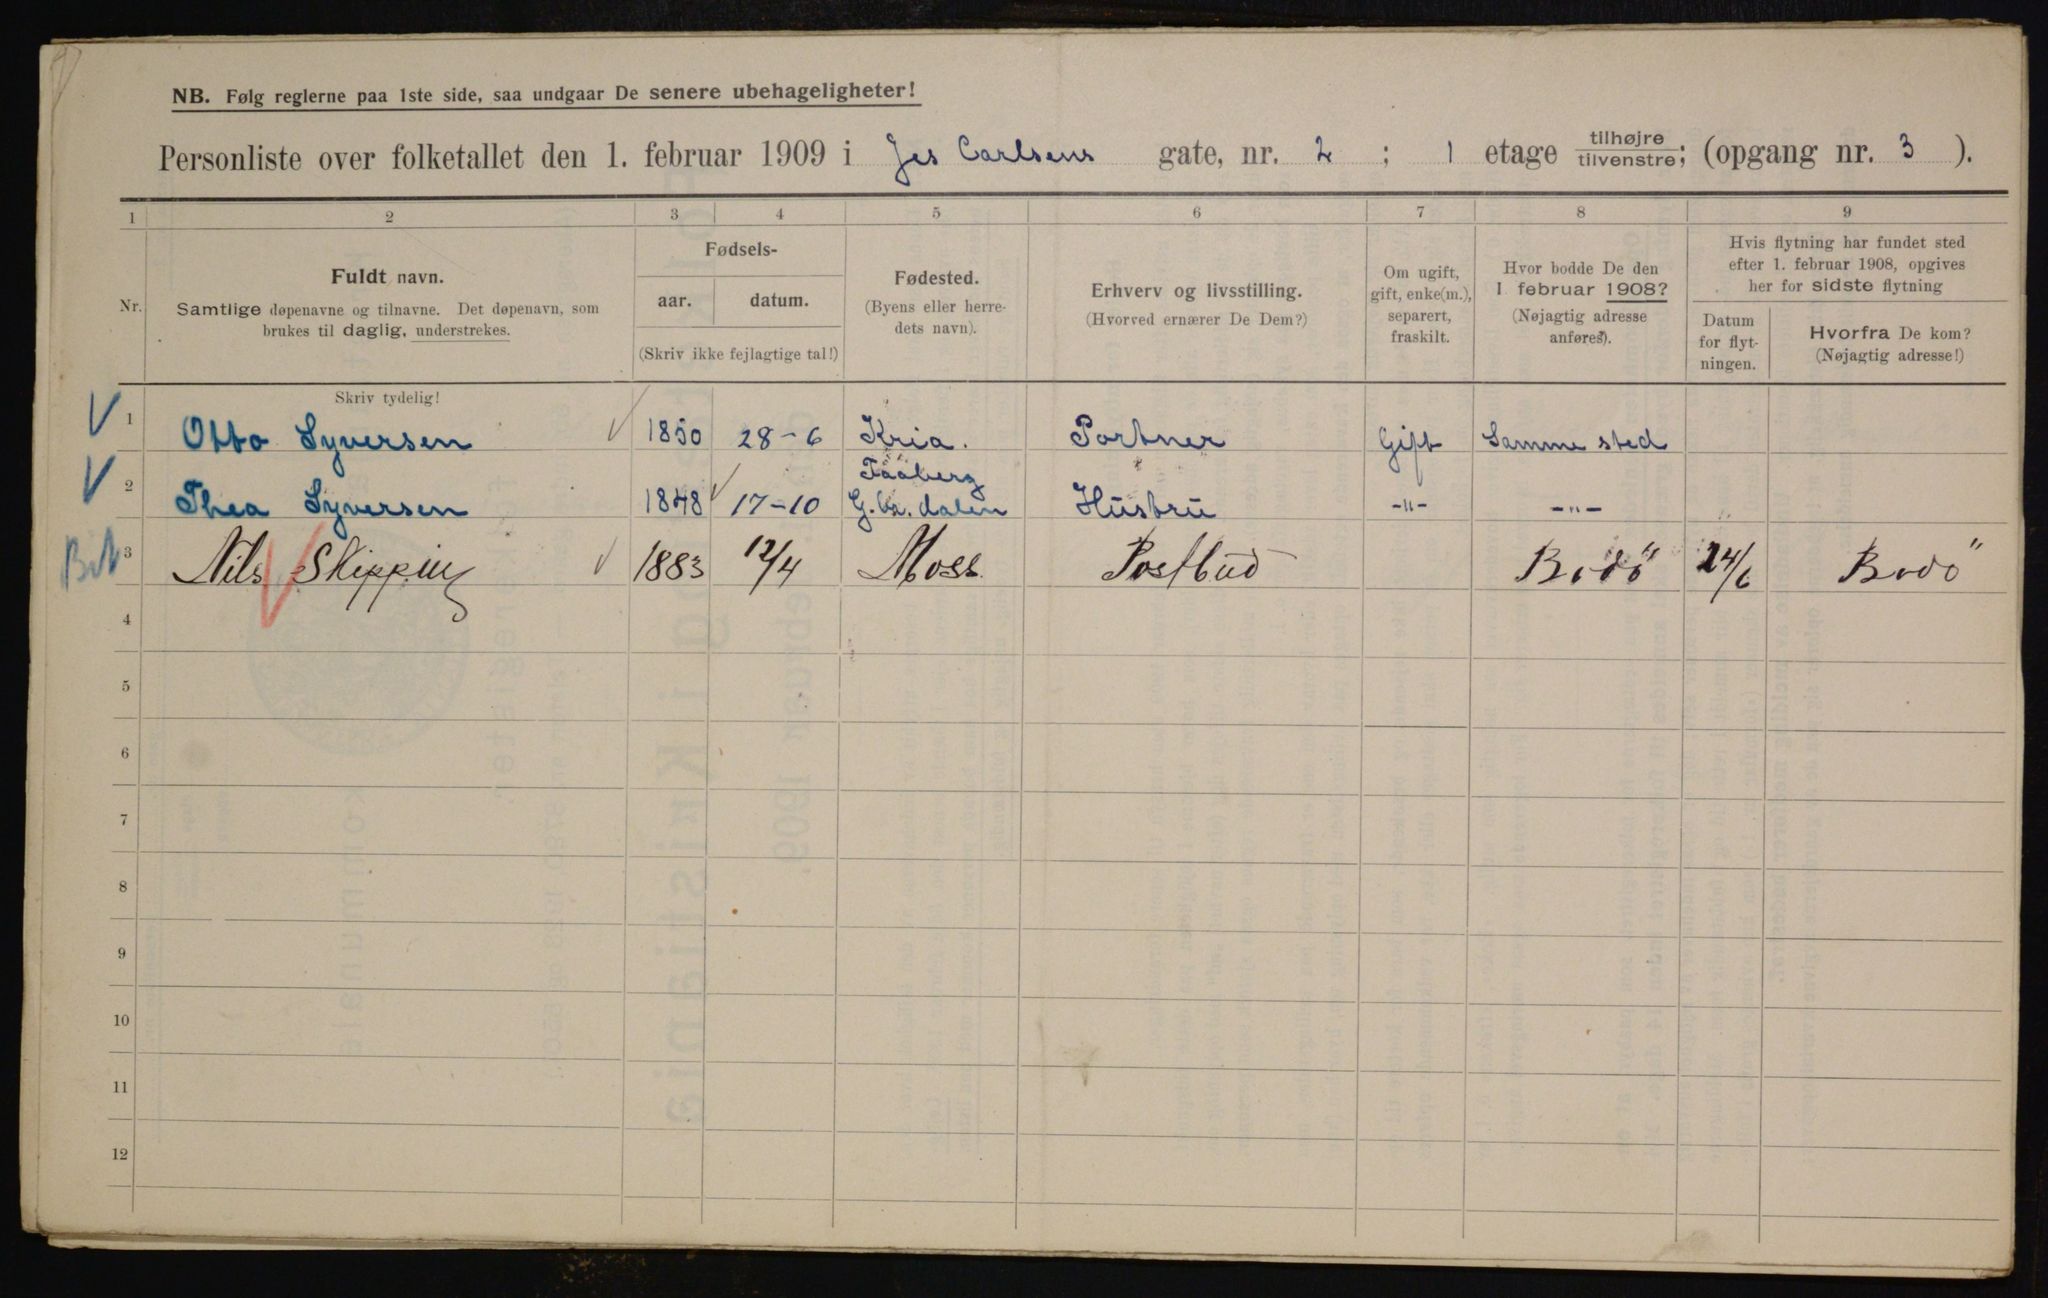 NB. Følg reglerne paa 1ste side, saa undgaar De senere ubehageligheter!
Personliste over folketallet den 1. februar 1909 i Jes Carlsens gate, nr. 2 ; 1 etage tilhøjre/tilvenstre; (opgang nr. 3 ).
1 2 3 4 5 6 7 8 9
Nr.
Fuldt navn.
Samtlige døpenavne og tilnavne. Det døpenavn, som
brukes til daglig, understrekes.
Fødsels-
aar. datum.
(Skriv ikke fejlagtige tal!)
Fødested.
(Byens eller herre-
dets navn).
Erhverv og livsstilling.
(Hvorved ernærer De Dem?)
Om ugift,
gift, enke(m.),
separert,
fraskilt.
Hvor bodde De den
1. februar 1908?
(Nøjagtig adresse
anføres).
Hvis flytning har fundet sted
efter 1. februar 1908, opgives
her for sidste flytning
Datum
for flyt-
ningen.
Hvorfra De kom?
(Nøjagtig adresse!)
Skriv tydelig!
1 Otto Syversen 1850 28-6 Kria. Portner Gift Samme sted
2 Thea Syversen 1848 17-10 Faaberg G.br.dalen Hustru -"- -"-
3 Nils Skipping 1883 12/4 Moss Postbud Bodö 24/6 Bodö
4
5
6
7
8
9
10
11
12